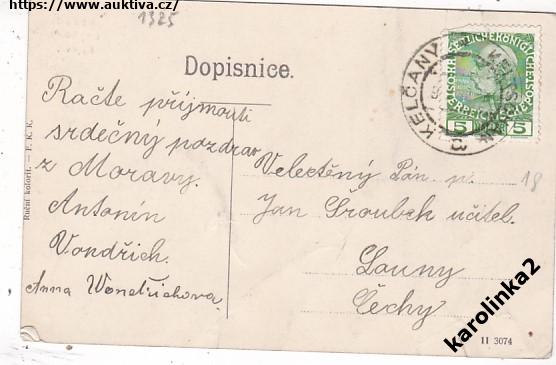 https://www.auktiva.cz/
1325
Dopisnice.
Račte přijmouti
srdečný pozdrav
z Moravy.
Antonín
Vondřich.
Anna Wondřichova.
Velectěný Pán p.
Jan Šroubek učitel.
Louny
Čechy
18
KELČANY
5 5
Ruční kolorit. — F. K. K.
II 3074
karolinka2